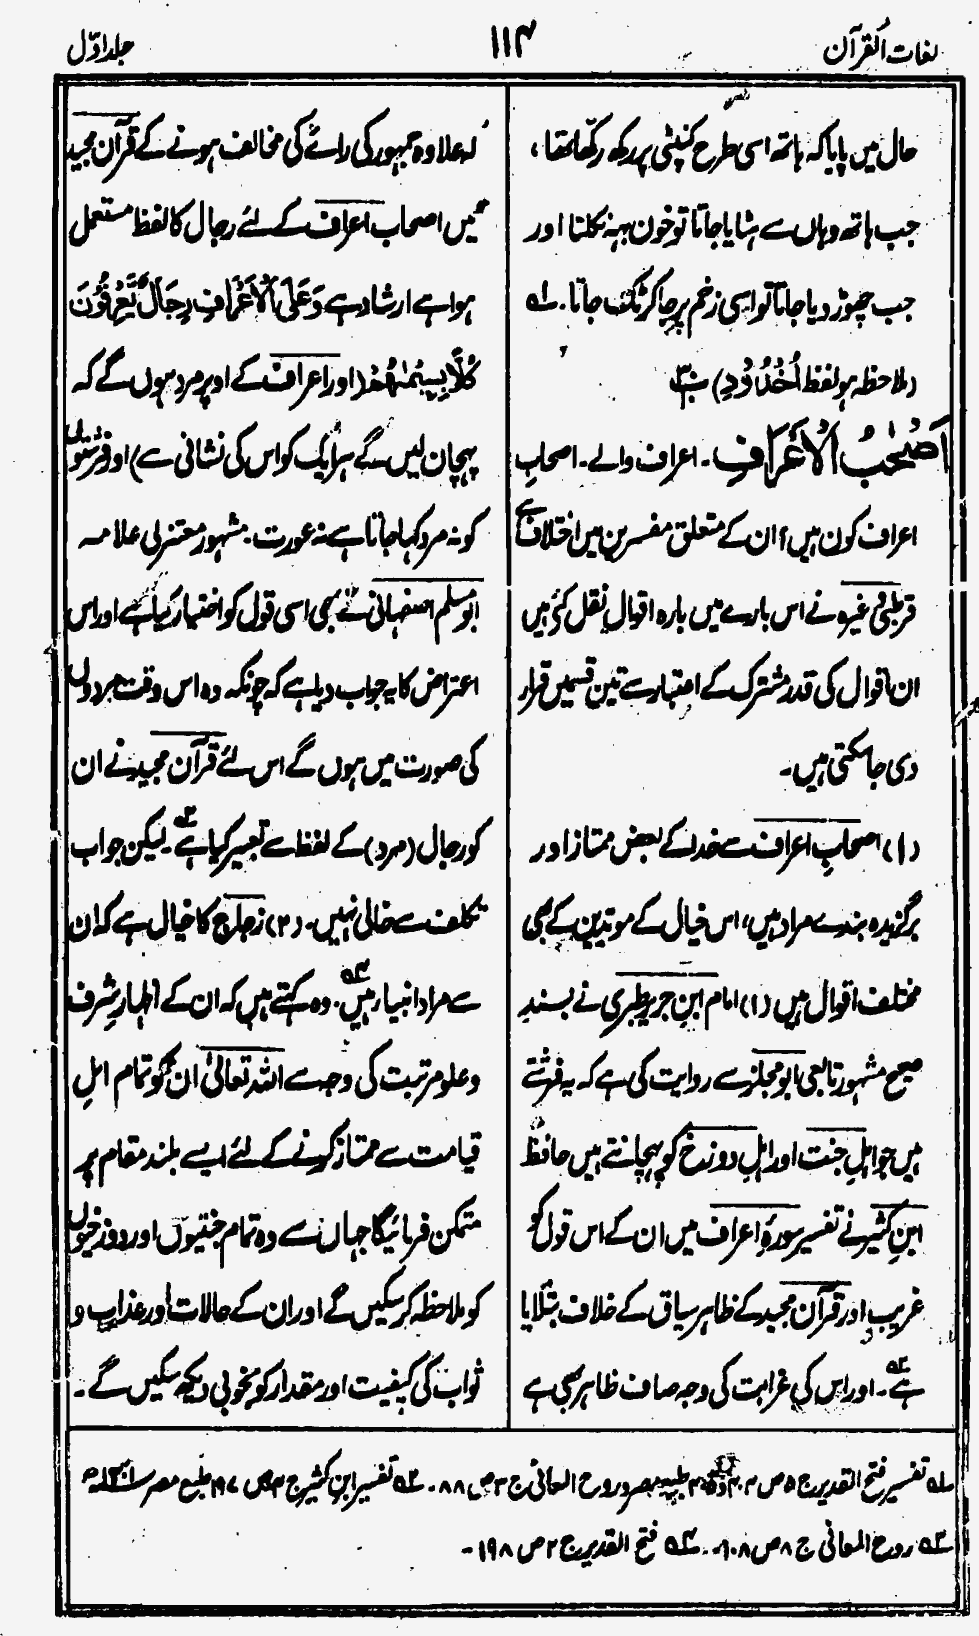 لغات القرآن
۱۱۴
جلد اوّل
حال میں پایا کہ ہاتھ اسی طرح کنپٹی پر رکھ رکھا تھا،
جب ہاتھ وہاں سے ہٹایا جاتا تو خون بہہ نکلتا اور
جب چھوڑ دیا جاتا تو اسی زخم پر جا کر ٹک جاتا۔ ؎۱
(ملاحظہ ہو لفظ اُخْدُوْد)
اَصْحٰبُ الْاَعْرَافِ ۔ اعراف والے۔ اصحابِ
اعراف کون ہیں؟ ان کے متعلق مفسرین میں اختلاف ہے
قرطبی وغیرہ نے اس بارے میں بارہ اقوال نقل کئے ہیں
ان اقوال کی قدر مشترک کے اعتبار سے تین قسمیں قرار
دی جاسکتی ہیں۔
(۱) اصحابِ اعراف سے خدا کے بعض ممتاز اور
برگزیدہ بندے مراد ہیں، اس خیال کے مویّدین کے بھی
مختلف اقوال ہیں (۱) امام ابن جریر طبری نے بسندِ
صحیح مشہور تابعی ابو مجلز سے روایت کی ہے کہ یہ فرشتے
ہیں جو اہلِ جنت اور اہلِ دوزخ کو پہچانتے ہیں حافظ
ابنِ کثیر نے تفسیر سورۂ اعراف میں ان کے اس قول کو
غریب اور قرآن مجید کے ظاہر سیاق کے خلاف بتلایا
ہے ؎۲۔ اور اس کی غرابت کی وجہ صاف ظاہر بھی ہے
کہ علاوہ جمہور کی رائے کی مخالف ہونے کے قرآن مجید
میں اصحاب اعراف کے لئے رجال کا لفظ مستعمل
ہوا ہے ارشاد ہے وَعَلَی الْاَعْرَافِ رِجَالٌ یَّعْرِفُوْنَ
کُلًّا بِسِیْمٰھُمْ (اور اعراف کے اوپر مرد ہوں گے کہ
پہچان لیں گے ہر ایک کو اس کی نشانی سے) اور فرشتوں
کو نہ مرد کہا جاتا ہے نہ عورت۔ مشہور معتزلی علامہ
ابو مسلم اصفہانی نے بھی اسی قول کو اختیار کیا ہے اور اس
اعتراض کا یہ جواب دیا ہے کہ چونکہ وہ اس وقت مردوں
کی صورت میں ہوں گے اس لئے قرآن مجید نے ان
کو رجال (مرد) کے لفظ سے تعبیر کیا ہے ؎۳۔ لیکن جواب
تکلف سے خالی نہیں۔ (۲) زجاج کا خیال ہے کہ ان
سے مراد انبیاء ہیں ؎۴۔ وہ کہتے ہیں کہ ان کے اظہارِ شرف
و علو مرتبت کی وجہ سے اللہ تعالیٰ ان کو تمام اہلِ
قیامت سے ممتاز کرنے کے لئے ایسے بلند مقام پر
متمکن فرمائیگا جہاں سے وہ تمام جنتیوں اور دوزخیوں
کو ملاحظہ کر سکیں گے اور ان کے حالات اور عذاب و
ثواب کی کیفیت اور مقدار کو بخوبی دیکھ سکیں گے۔
؎۱ تفسیر فتح القدیر ج ۵ ص طبع مصر و روح المعانی ج ۳ ص ۸۸۔ ؎۲ تفسیر ابنِ کثیر ج ۴ ص ۱۹۷ طبع مصر
؎۳ روح المعانی ج ۸ ص ۱۰۸۔ ؎۴ فتح القدیر ج ۲ ص ۱۹۸۔